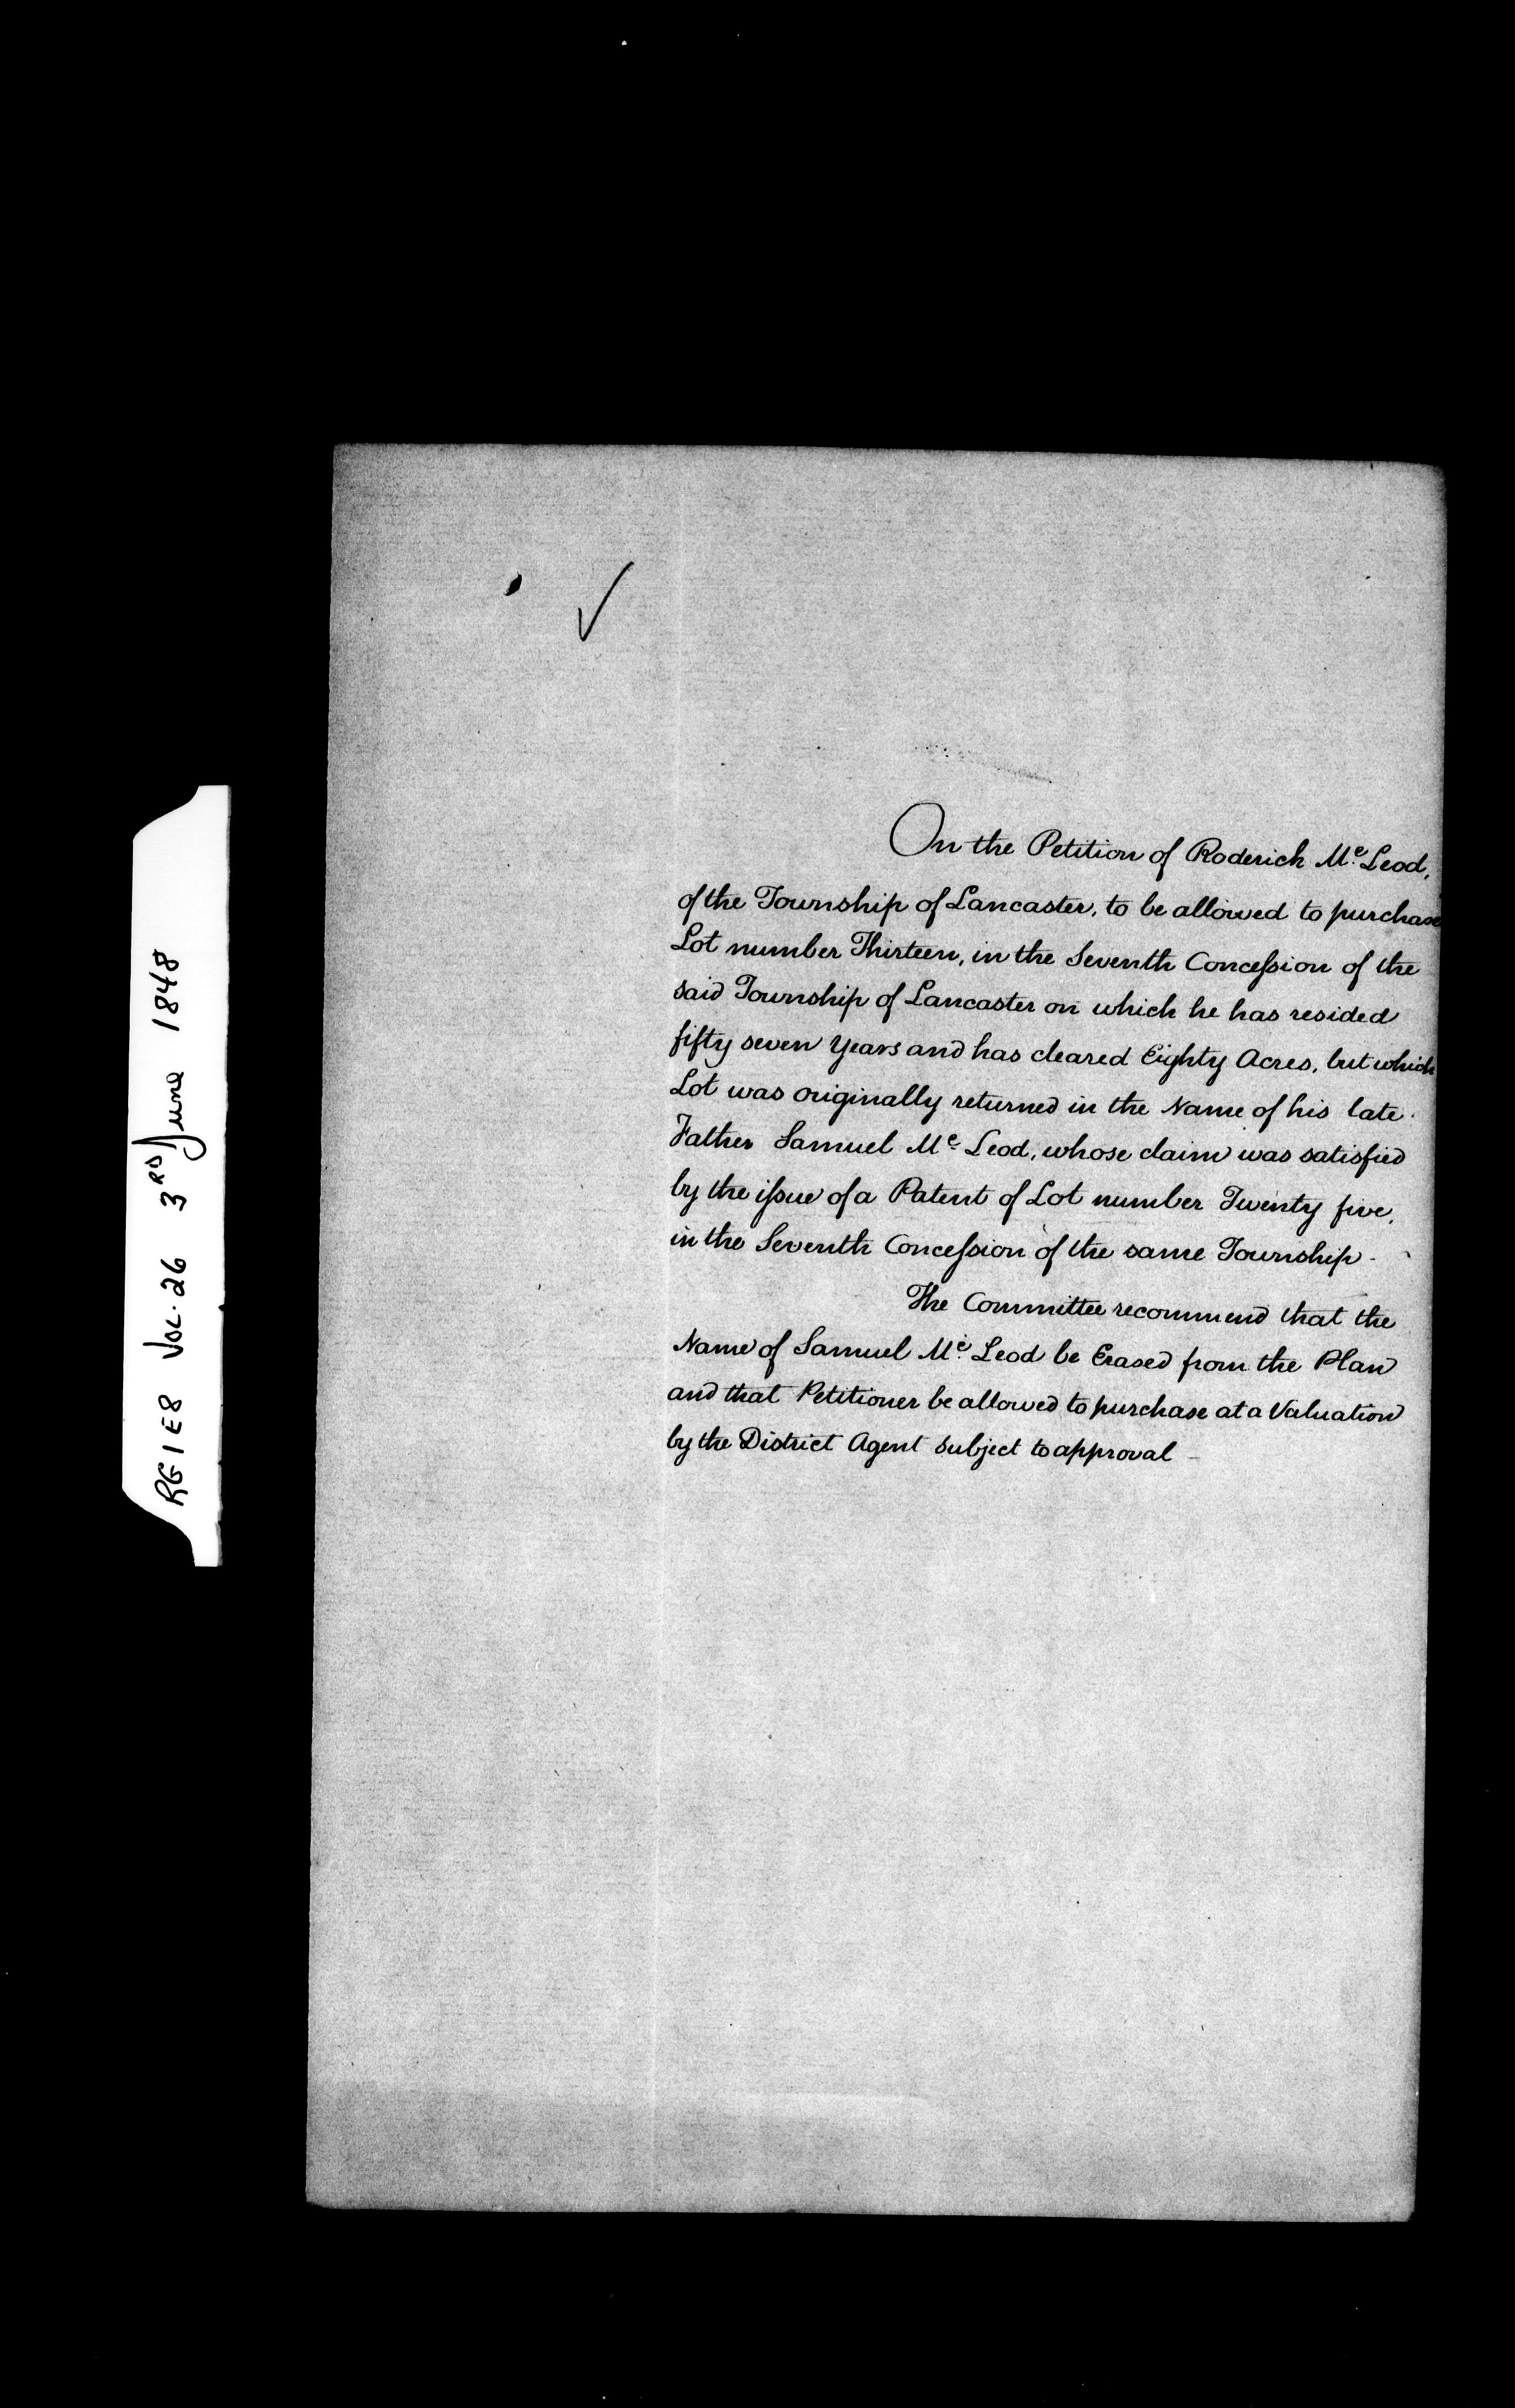 RG 1 E8 VOL. 26 3RD June 1848
On the Petition of Roderick Mc Leod,
of the Township of Lancaster, to be allowed to purchase
Lot number Thirteen, in the Seventh Concession of the
said Township of Lancaster on which he has resided
fifty seven Years and has cleared Eighty Acres, but which
Lot was originally returned in the Name of his late
Father Samuel Mc Leod, whose claim was satisfied
by the issue of a Patent of Lot number Twenty five,
in the Seventh Concession of the same Township -
The Committee recommend that the
Name of Samuel Mc Leod be Erased from the Plan
and that Petitioner be allowed to purchase at a Valuation
by the District Agent subject to approval -